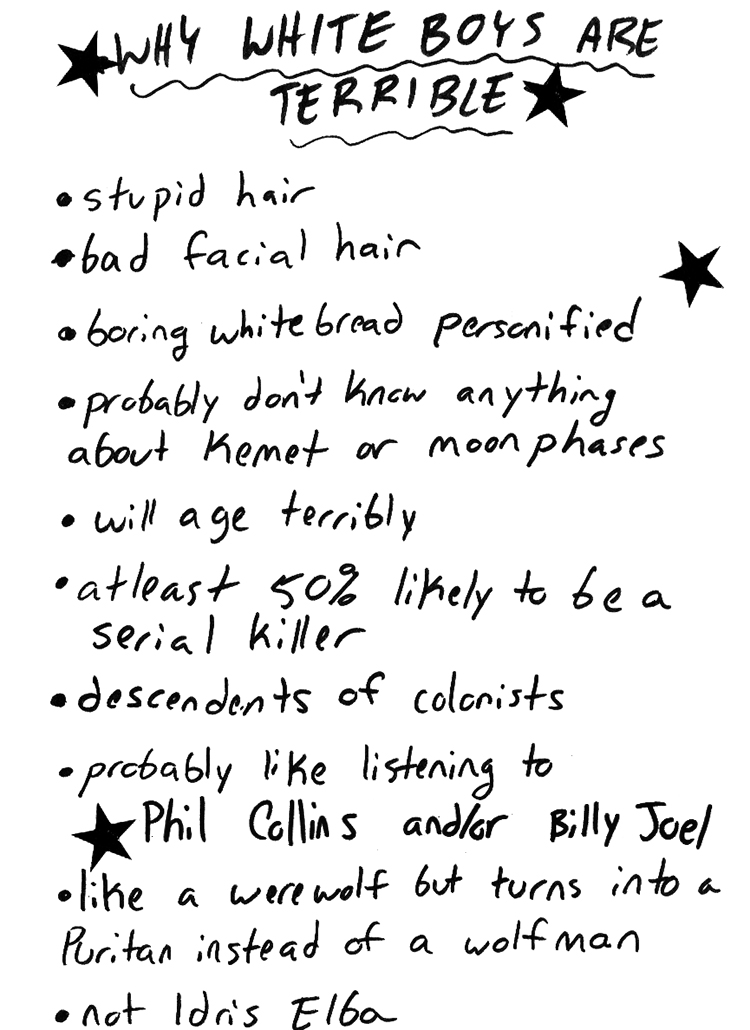 WHY WHITE BOYS ARE
TERRIBLE
• stupid hair
• bad facial hair
• boring white bread personified
• probably don't know anything
about Kemet or moon phases
• will age terribly
• atleast 50% likely to be a
serial killer
• descendents of colonists
• probably like listening to
Phil Collins and/or Billy Joel
• like a werewolf but turns into a
Puritan instead of a wolfman
• not Idris Elba